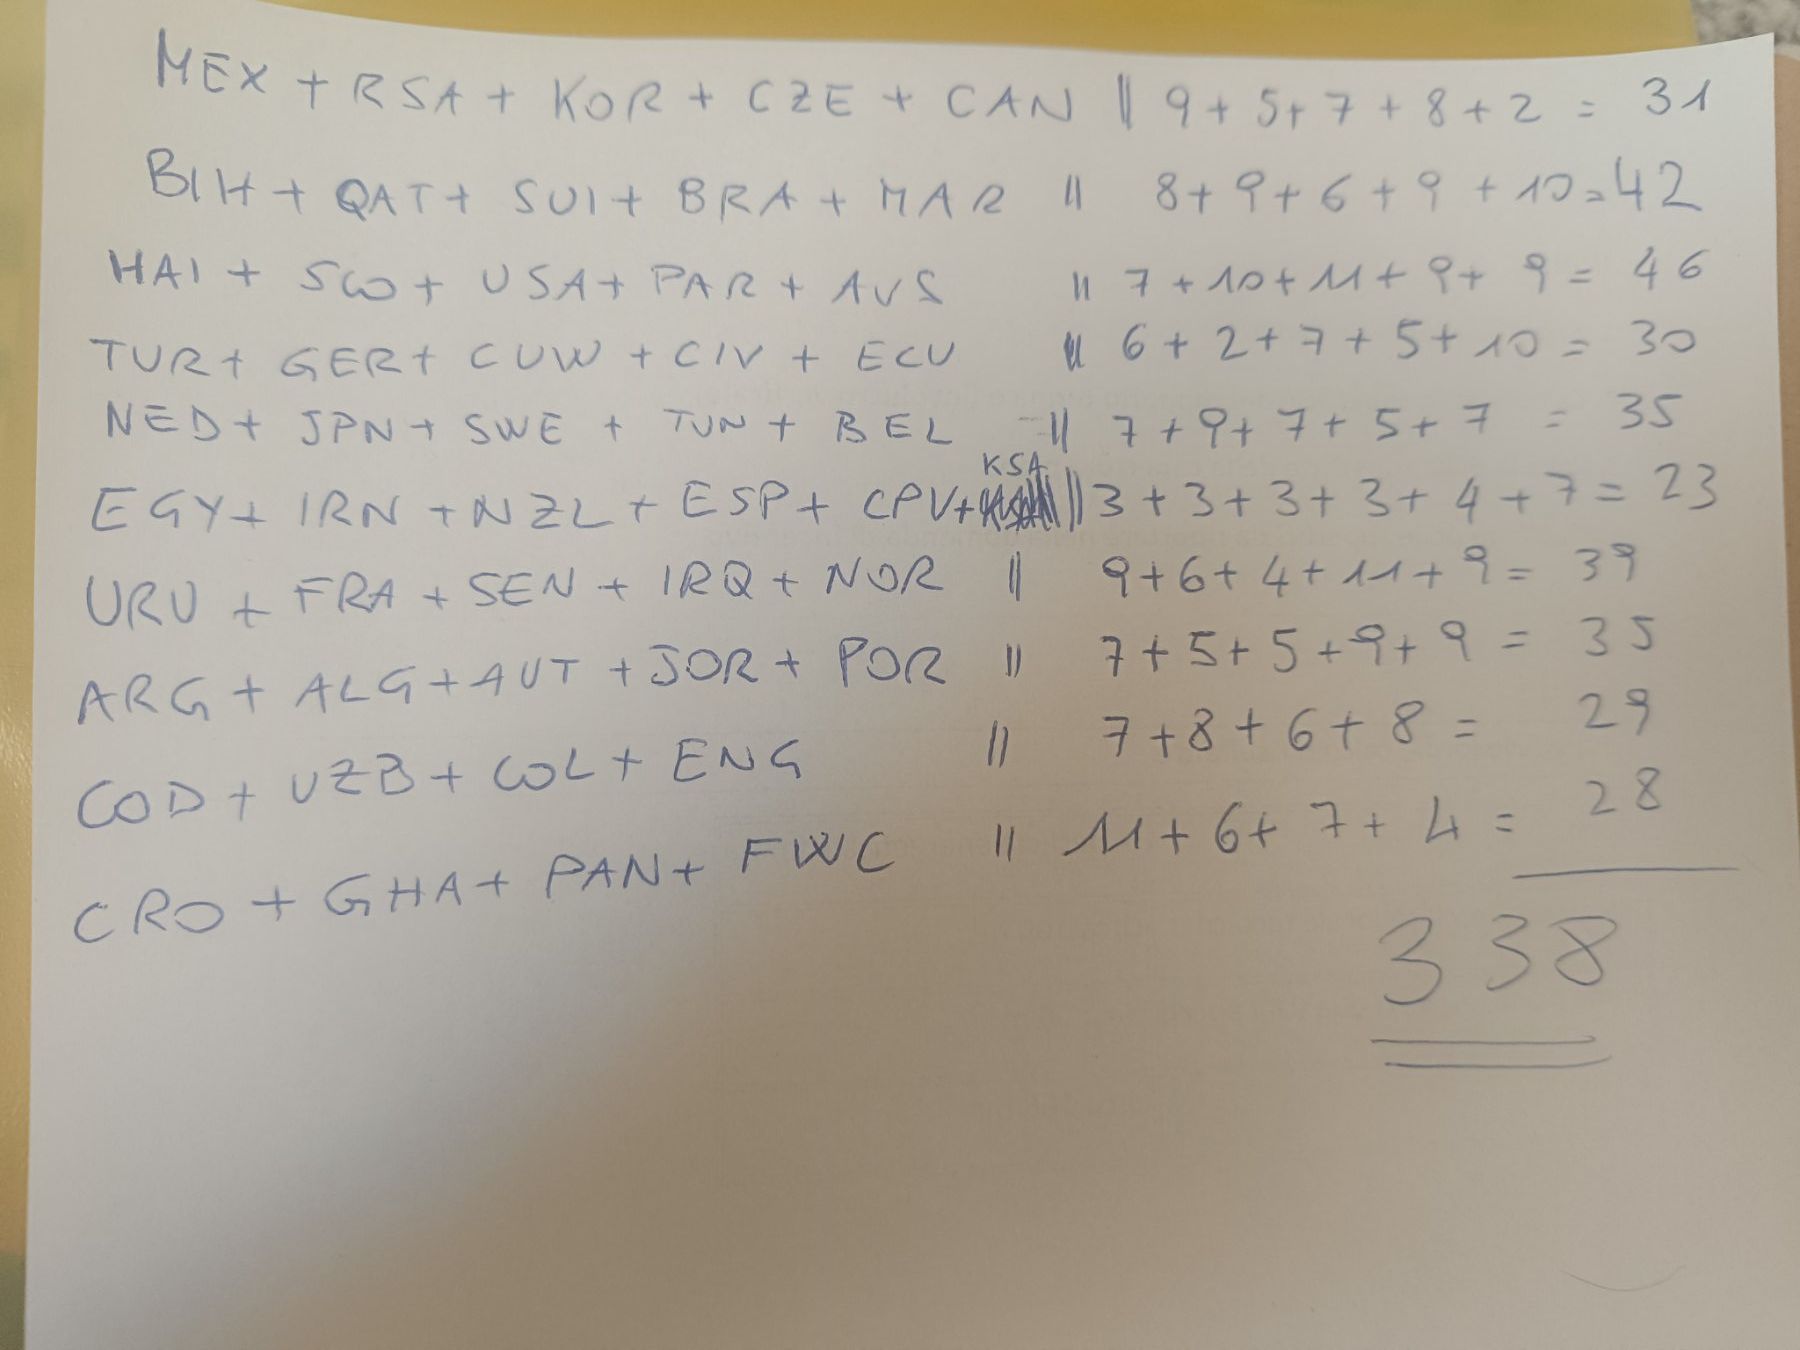 MEX + RSA + KOR + CZE + CAN || 9 + 5 + 7 + 8 + 2 = 31
BIH + QAT + SUI + BRA + MAR || 8 + 9 + 6 + 9 + 10 = 42
HAI + SCO + USA + PAR + AUS || 7 + 10 + 11 + 9 + 9 = 46
TUR + GER + CUW + CIV + ECU || 6 + 2 + 7 + 5 + 10 = 30
NED + JPN + SWE + TUN + BEL || 7 + 9 + 7 + 5 + 7 = 35
EGY + IRN + NZL + ESP + CPV + KSA || 3 + 3 + 3 + 3 + 4 + 7 = 23
URU + FRA + SEN + IRQ + NOR || 9 + 6 + 4 + 11 + 9 = 39
ARG + ALG + AUT + JOR + POR || 7 + 5 + 5 + 9 + 9 = 35
COD + UZB + COL + ENG || 7 + 8 + 6 + 8 = 29
CRO + GHA + PAN + FWC || 11 + 6 + 7 + 4 = 28
338